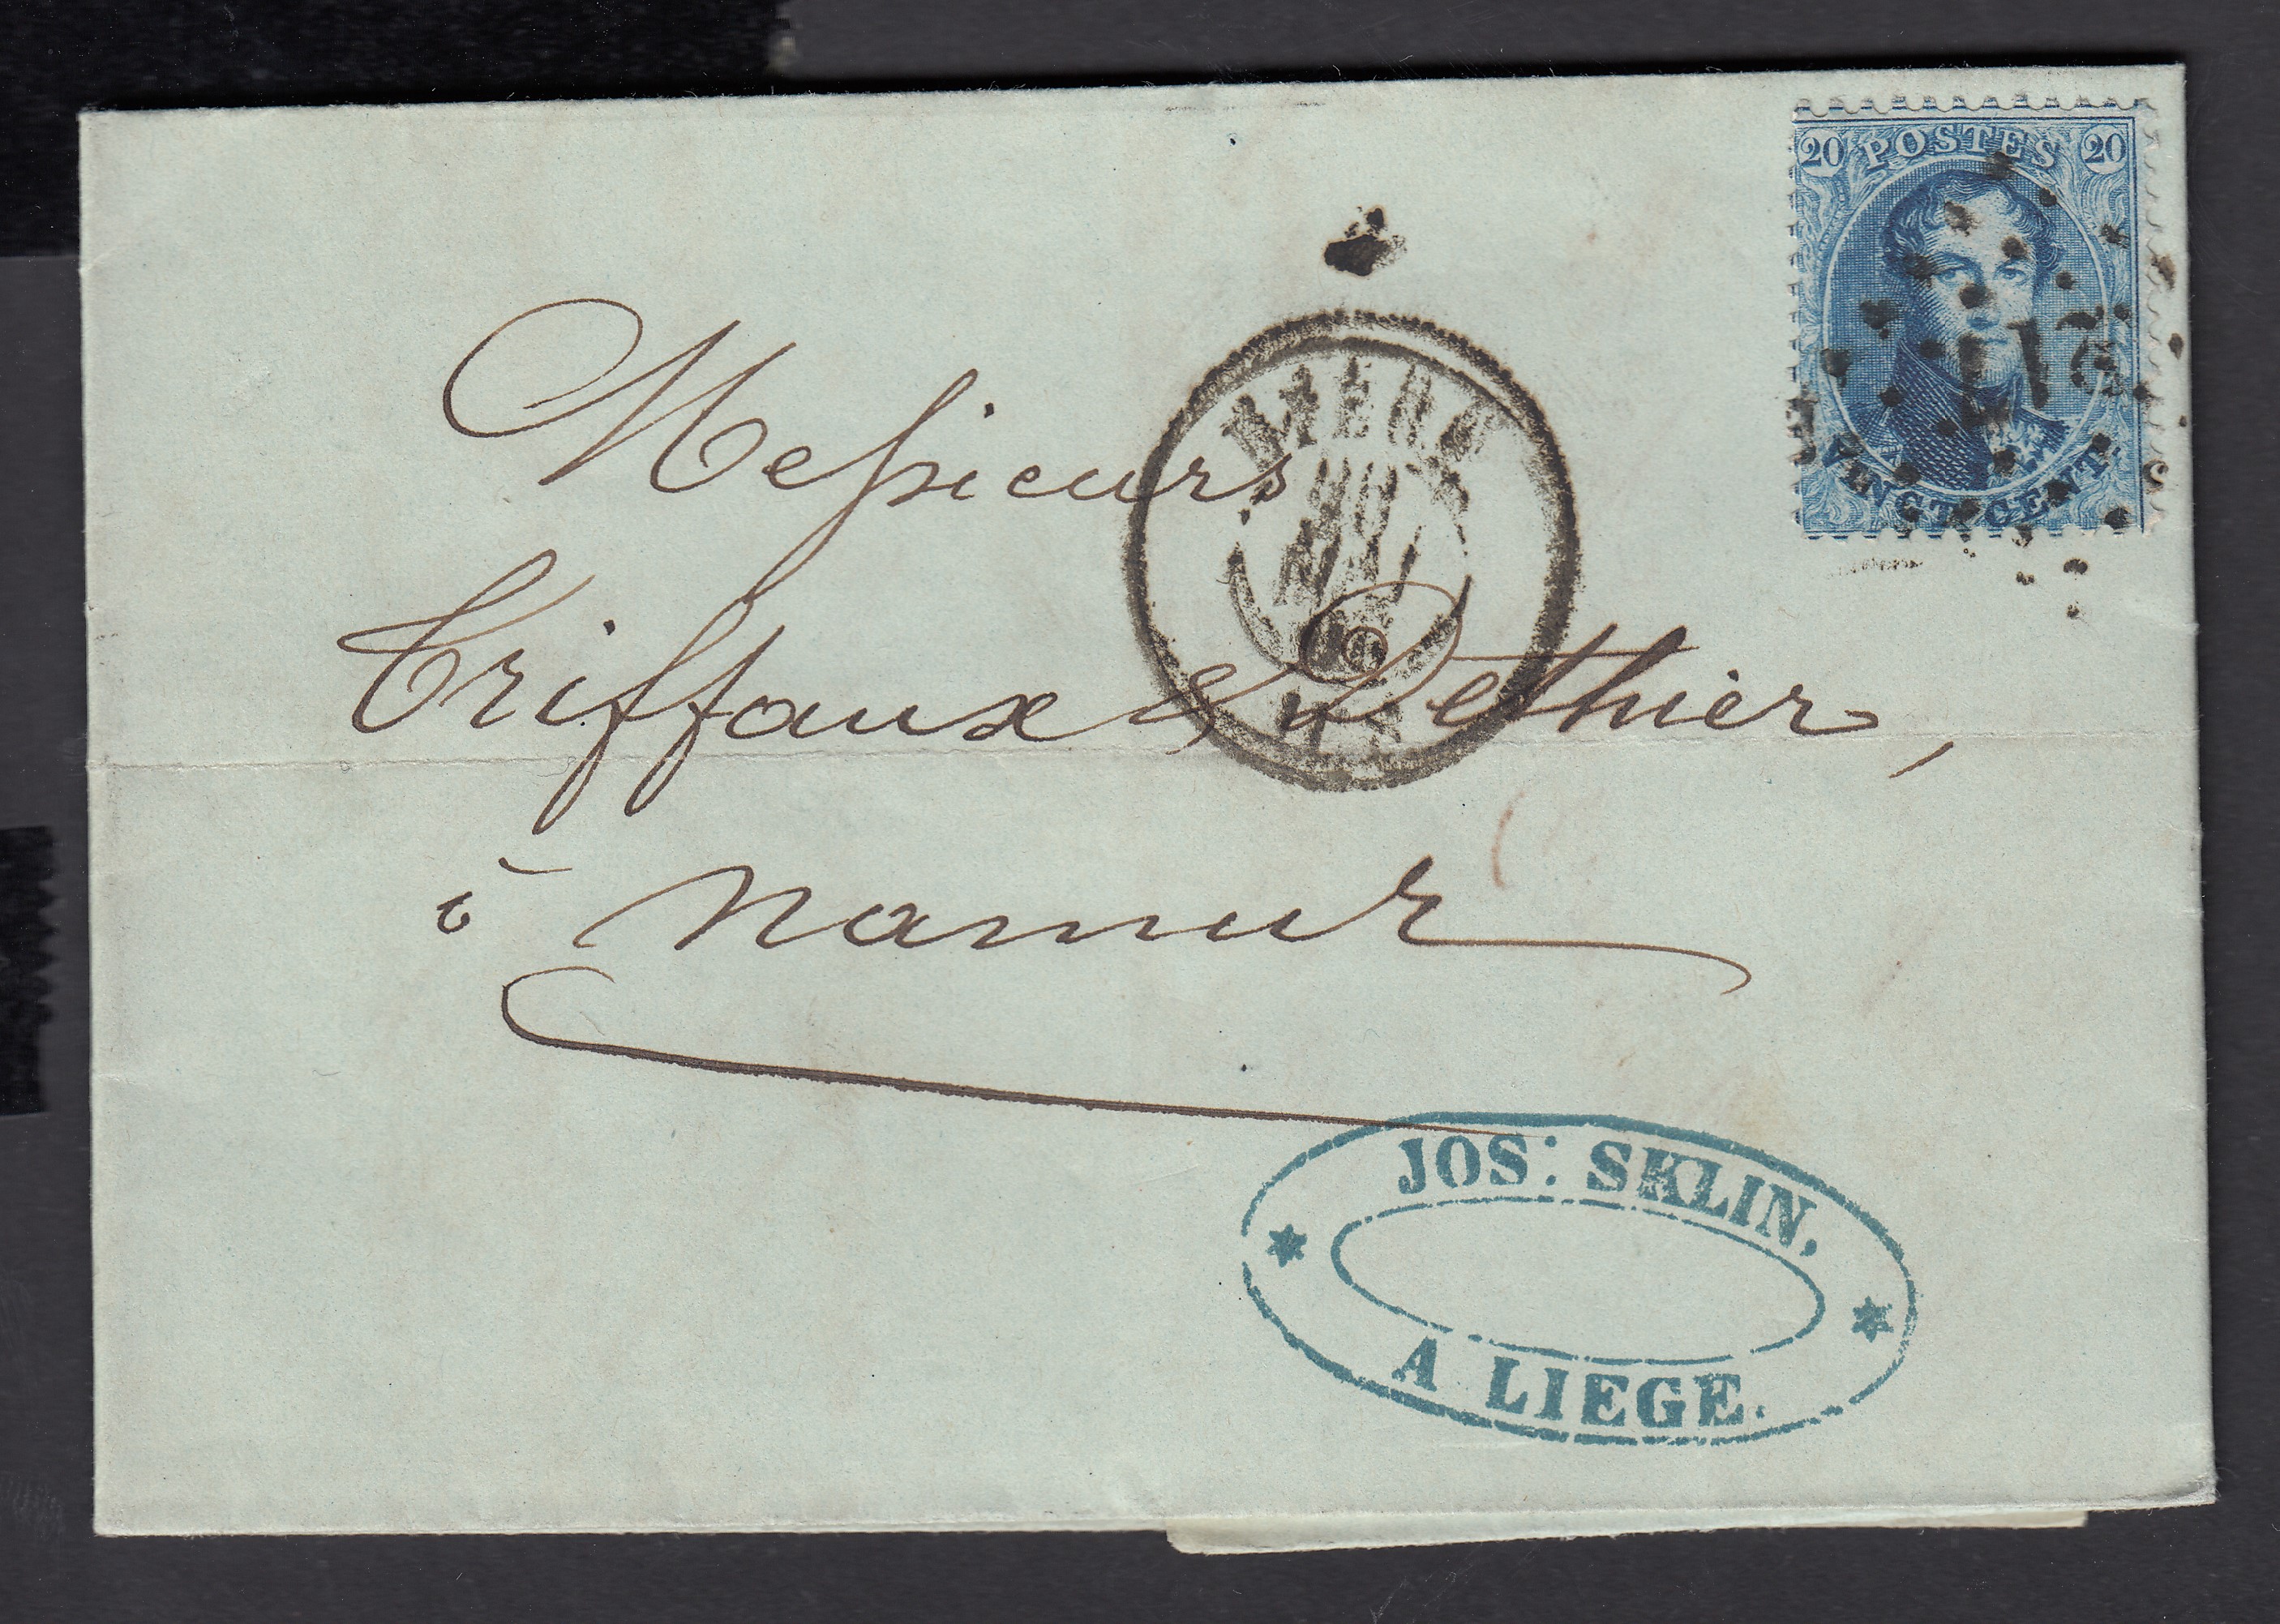 20 POSTES 20
VINGT CENT.
Messieurs
Triffaux & Dethier,
à Namur
JOS: SKLIN,
A LIEGE.